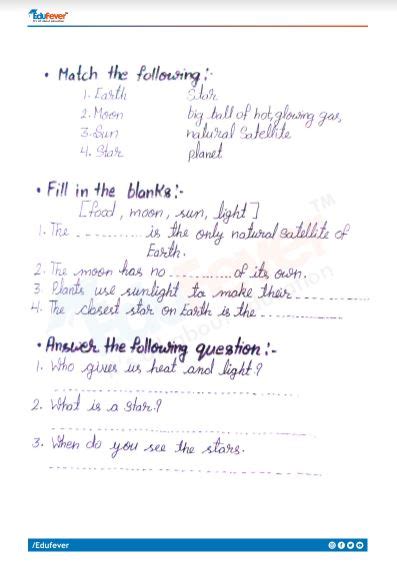 Edufever
• Match the following:-
1. Earth Star
2. Moon big ball of hot, glowing gas,
3. Sun natural Satellite
4. Star planet
• Fill in the blanks:-
[food, moon, sun, light]
1. The ------------ is the only natural satellite of
Earth.
2. The moon has no ------------ of its own.
3 Plants use sunlight to make their ------------
4. The closest star on Earth is the ------------
• Answer the following question:-
1. Who gives us heat and light?
2. What is a star?
3. When do you see the stars.
/Edufever